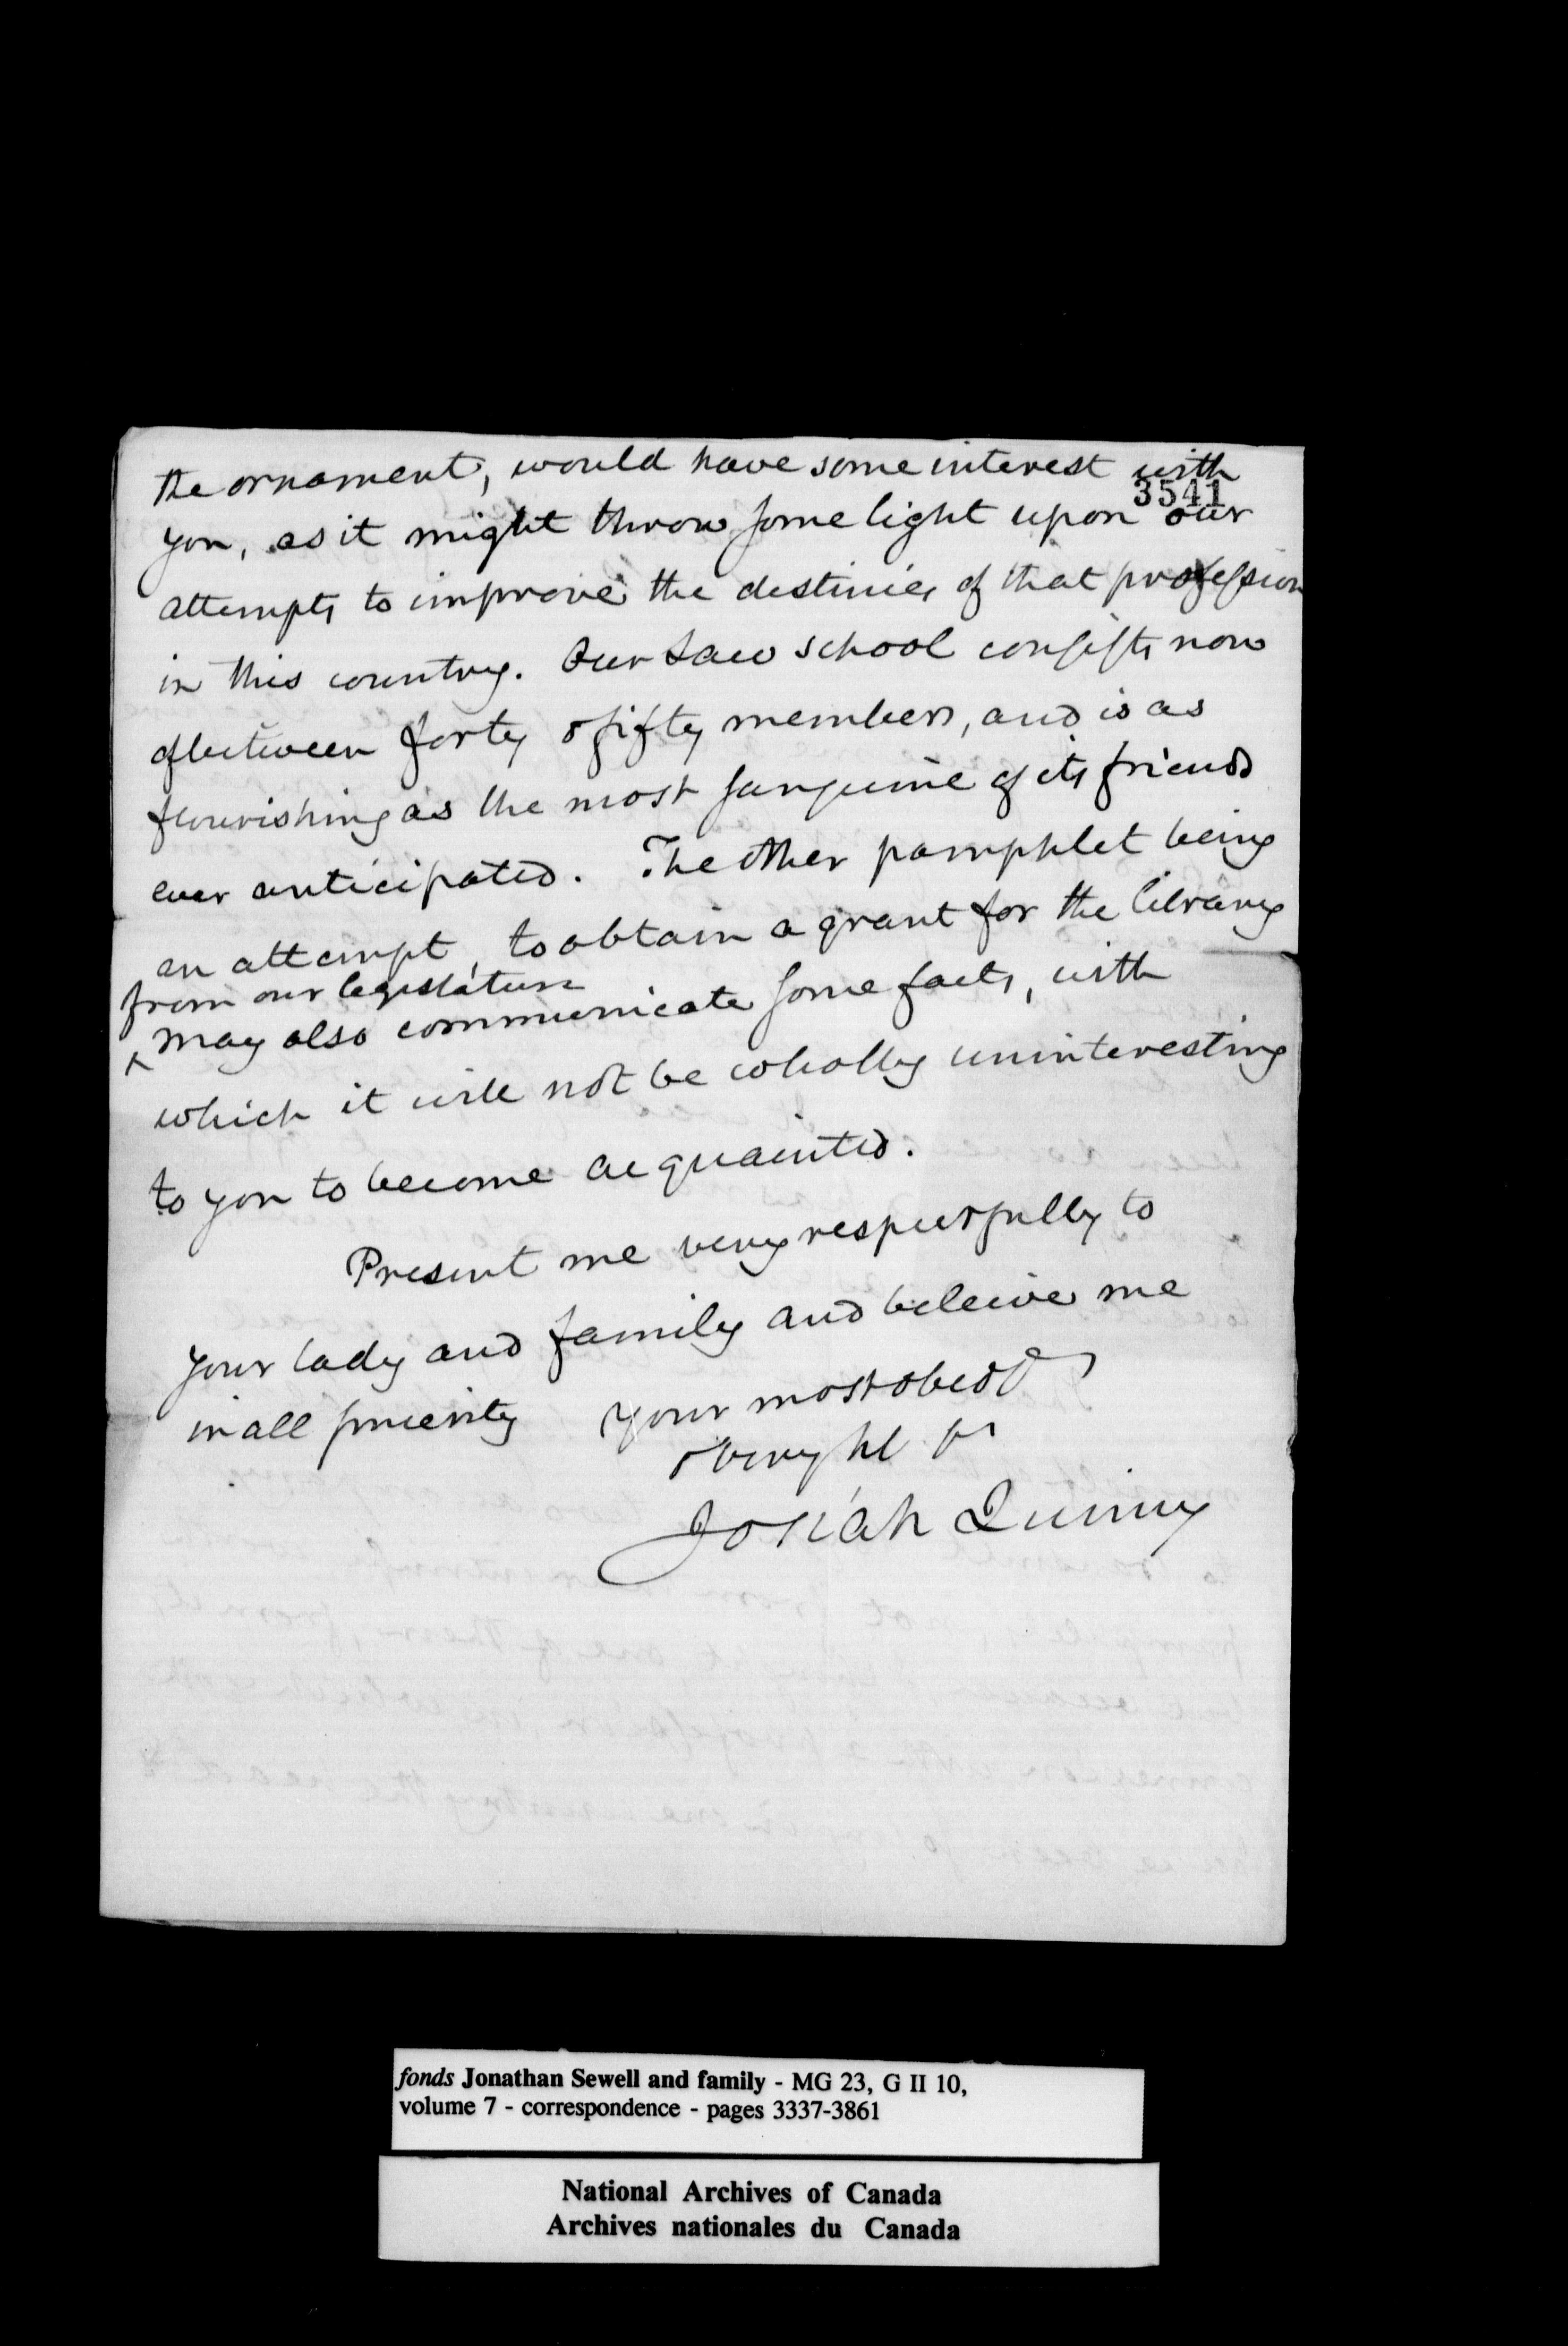 the ornament, would have some interest with
3541
you, as it might throw some light upon our
attempts to improve the destinies of that profession
in this country. Our Law school consists now
of between forty & fifty members, and is as
flourishing as the most sanguine of its friends
ever anticipated. The other pamphlet being
an attempt, to obtain a grant for the library
from our legislature
^ may also communicate some facts, with
which it will not be wholly uninteresting
to you to become acquainted.
Present me very respectfully to
your lady and family and beleive me
in all sincerity your most obedt
& very hl st
Josiah Quincy
fonds Jonathan Sewell and family - MG 23, G II 10,
volume 7 - correspondence - pages 3337-3861
National Archives of Canada
Archives nationales du Canada